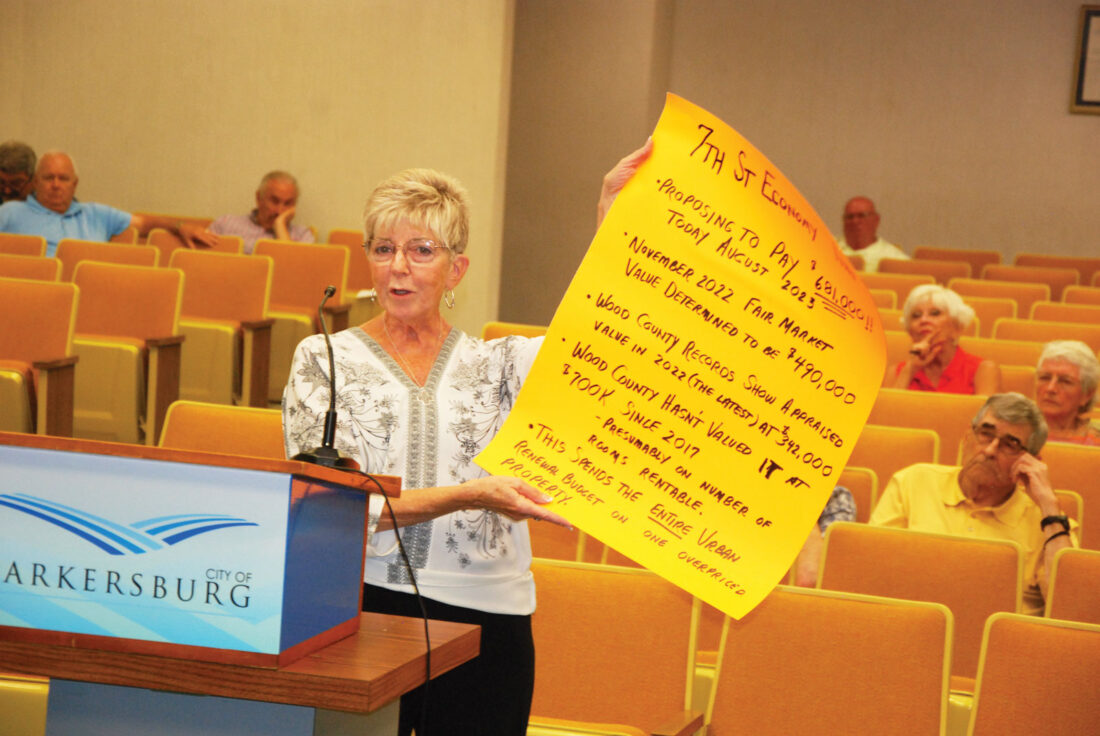 7TH ST ECONOMY
• PROPOSING TO PAY $681,000!!
TODAY AUGUST 2023
• NOVEMBER 2022 FAIR MARKET
VALUE DETERMINED TO BE $490,000
• WOOD COUNTY RECORDS SHOW APPRAISED
VALUE IN 2022 (THE LATEST) AT $342,000
• WOOD COUNTY HASN'T VALUED IT AT
$700K SINCE 2017
- PRESUMABLY ON NUMBER OF
ROOMS RENTABLE.
• THIS SPENDS THE ENTIRE URBAN
RENEWAL BUDGET ON ONE OVERPRICED
PROPERTY.
CITY OF
ARKERSBURG